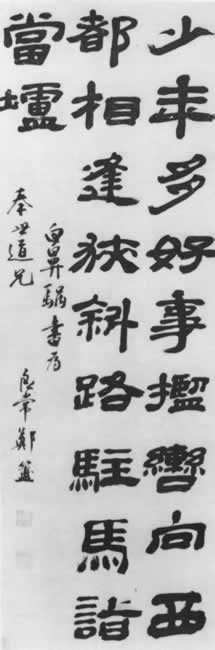 少年多好事攬轡向西
都相逢狹斜路駐馬詣
當壚
白鼻騧書為
奉世道兄
良常鄭